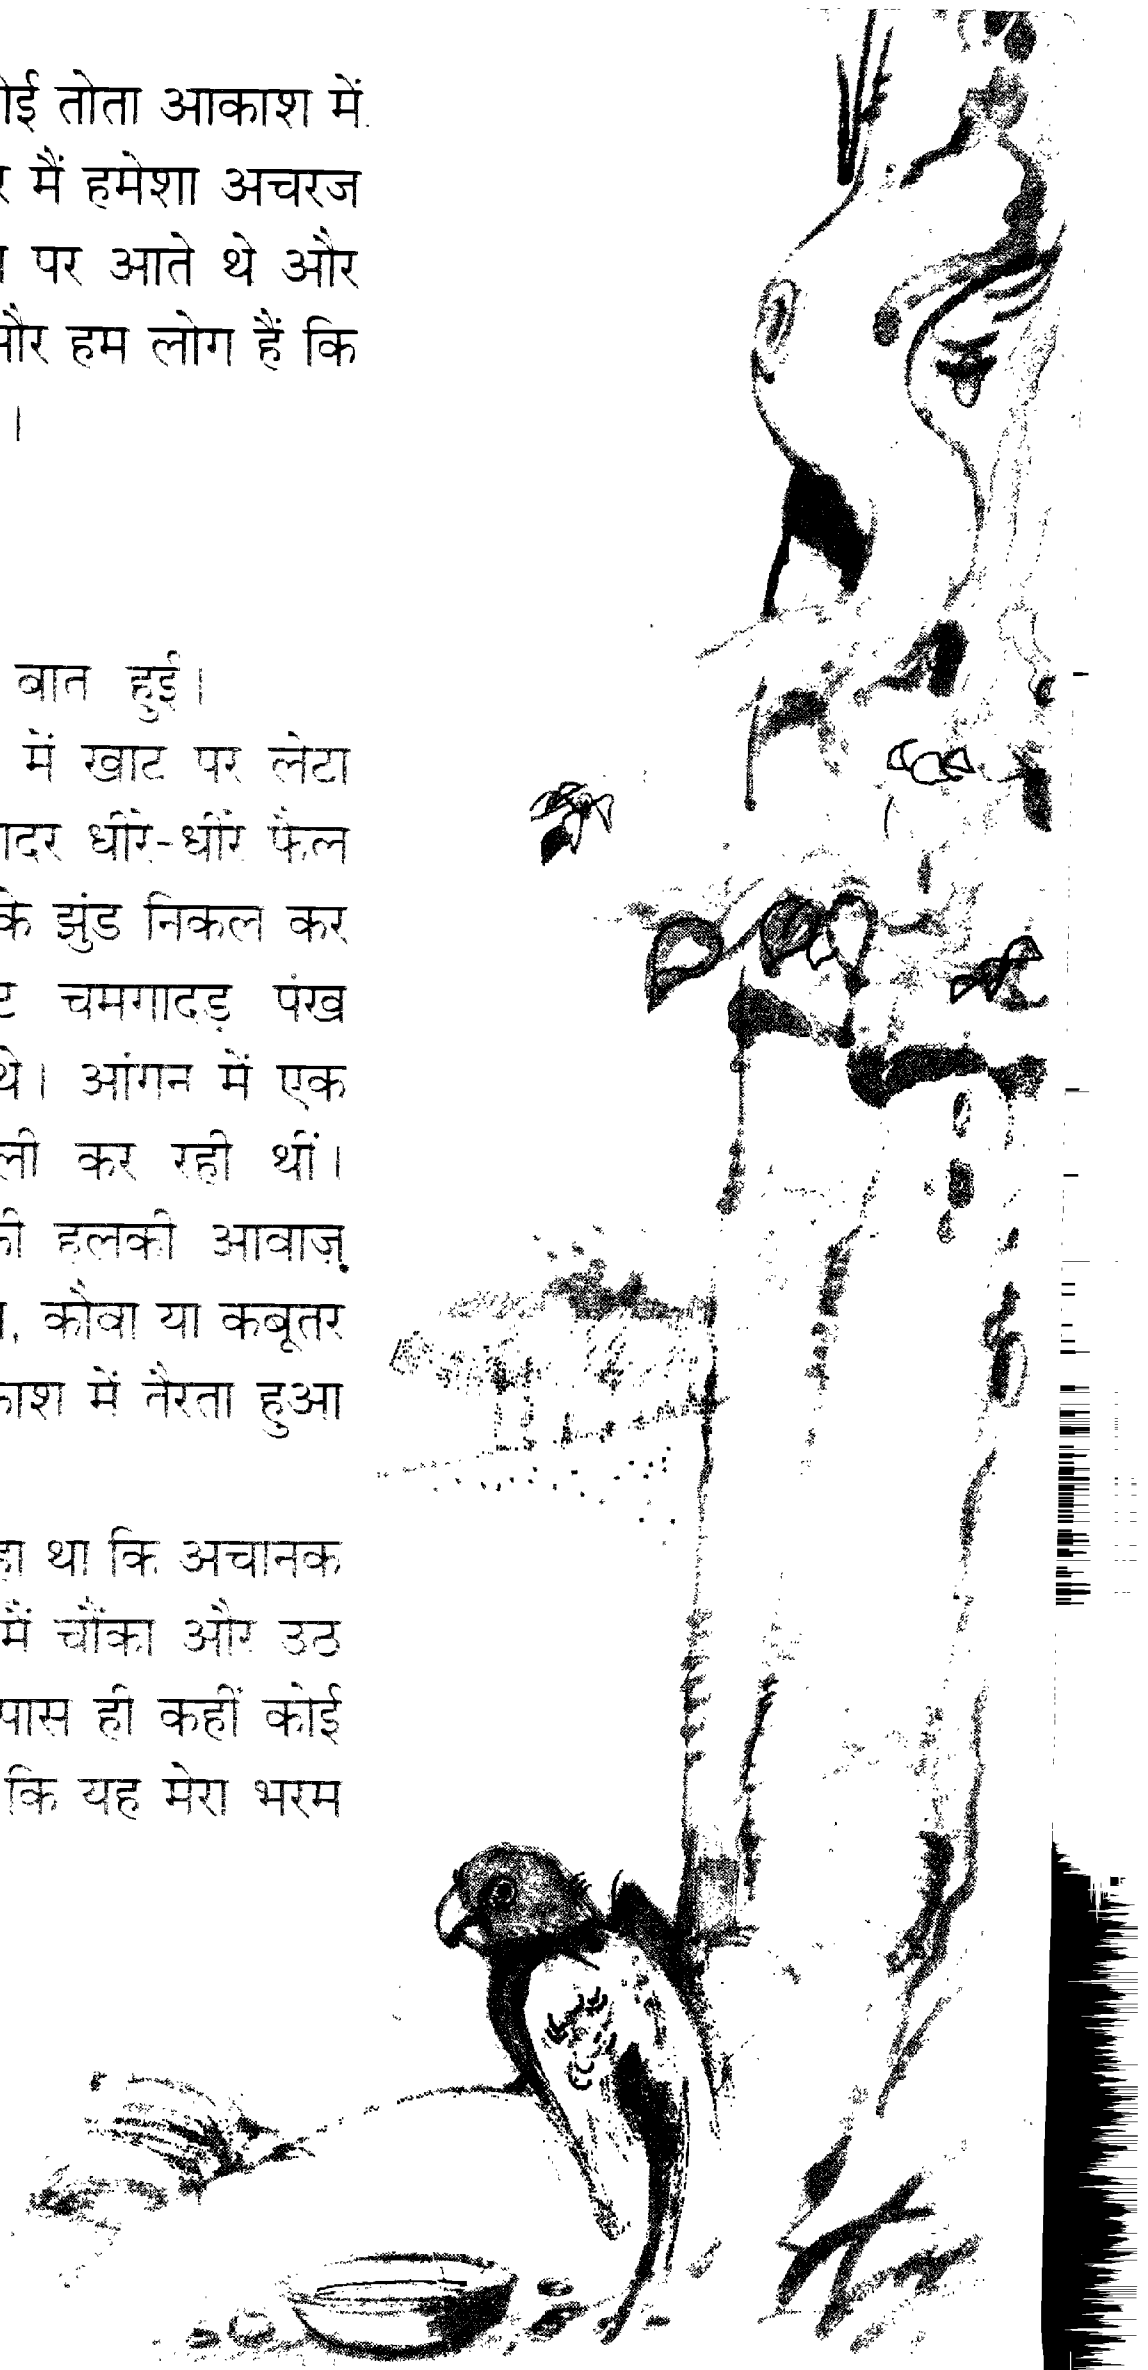 तोता आकाश में
मैं हमेशा अचरज
पर आते थे और
और हम लोग हैं कि
।
बात हुई।
में खाट पर लेटा
धीरे-धीरे फैल
के झुंड निकल कर
चमगादड़ पंख
थे। आंगन में एक
कर रही थीं।
की हलकी आवाज़
कौवा या कबूतर
में तैरता हुआ
था कि अचानक
मैं चौंका और उठ
पास ही कहीं कोई
कि यह मेरा भरम